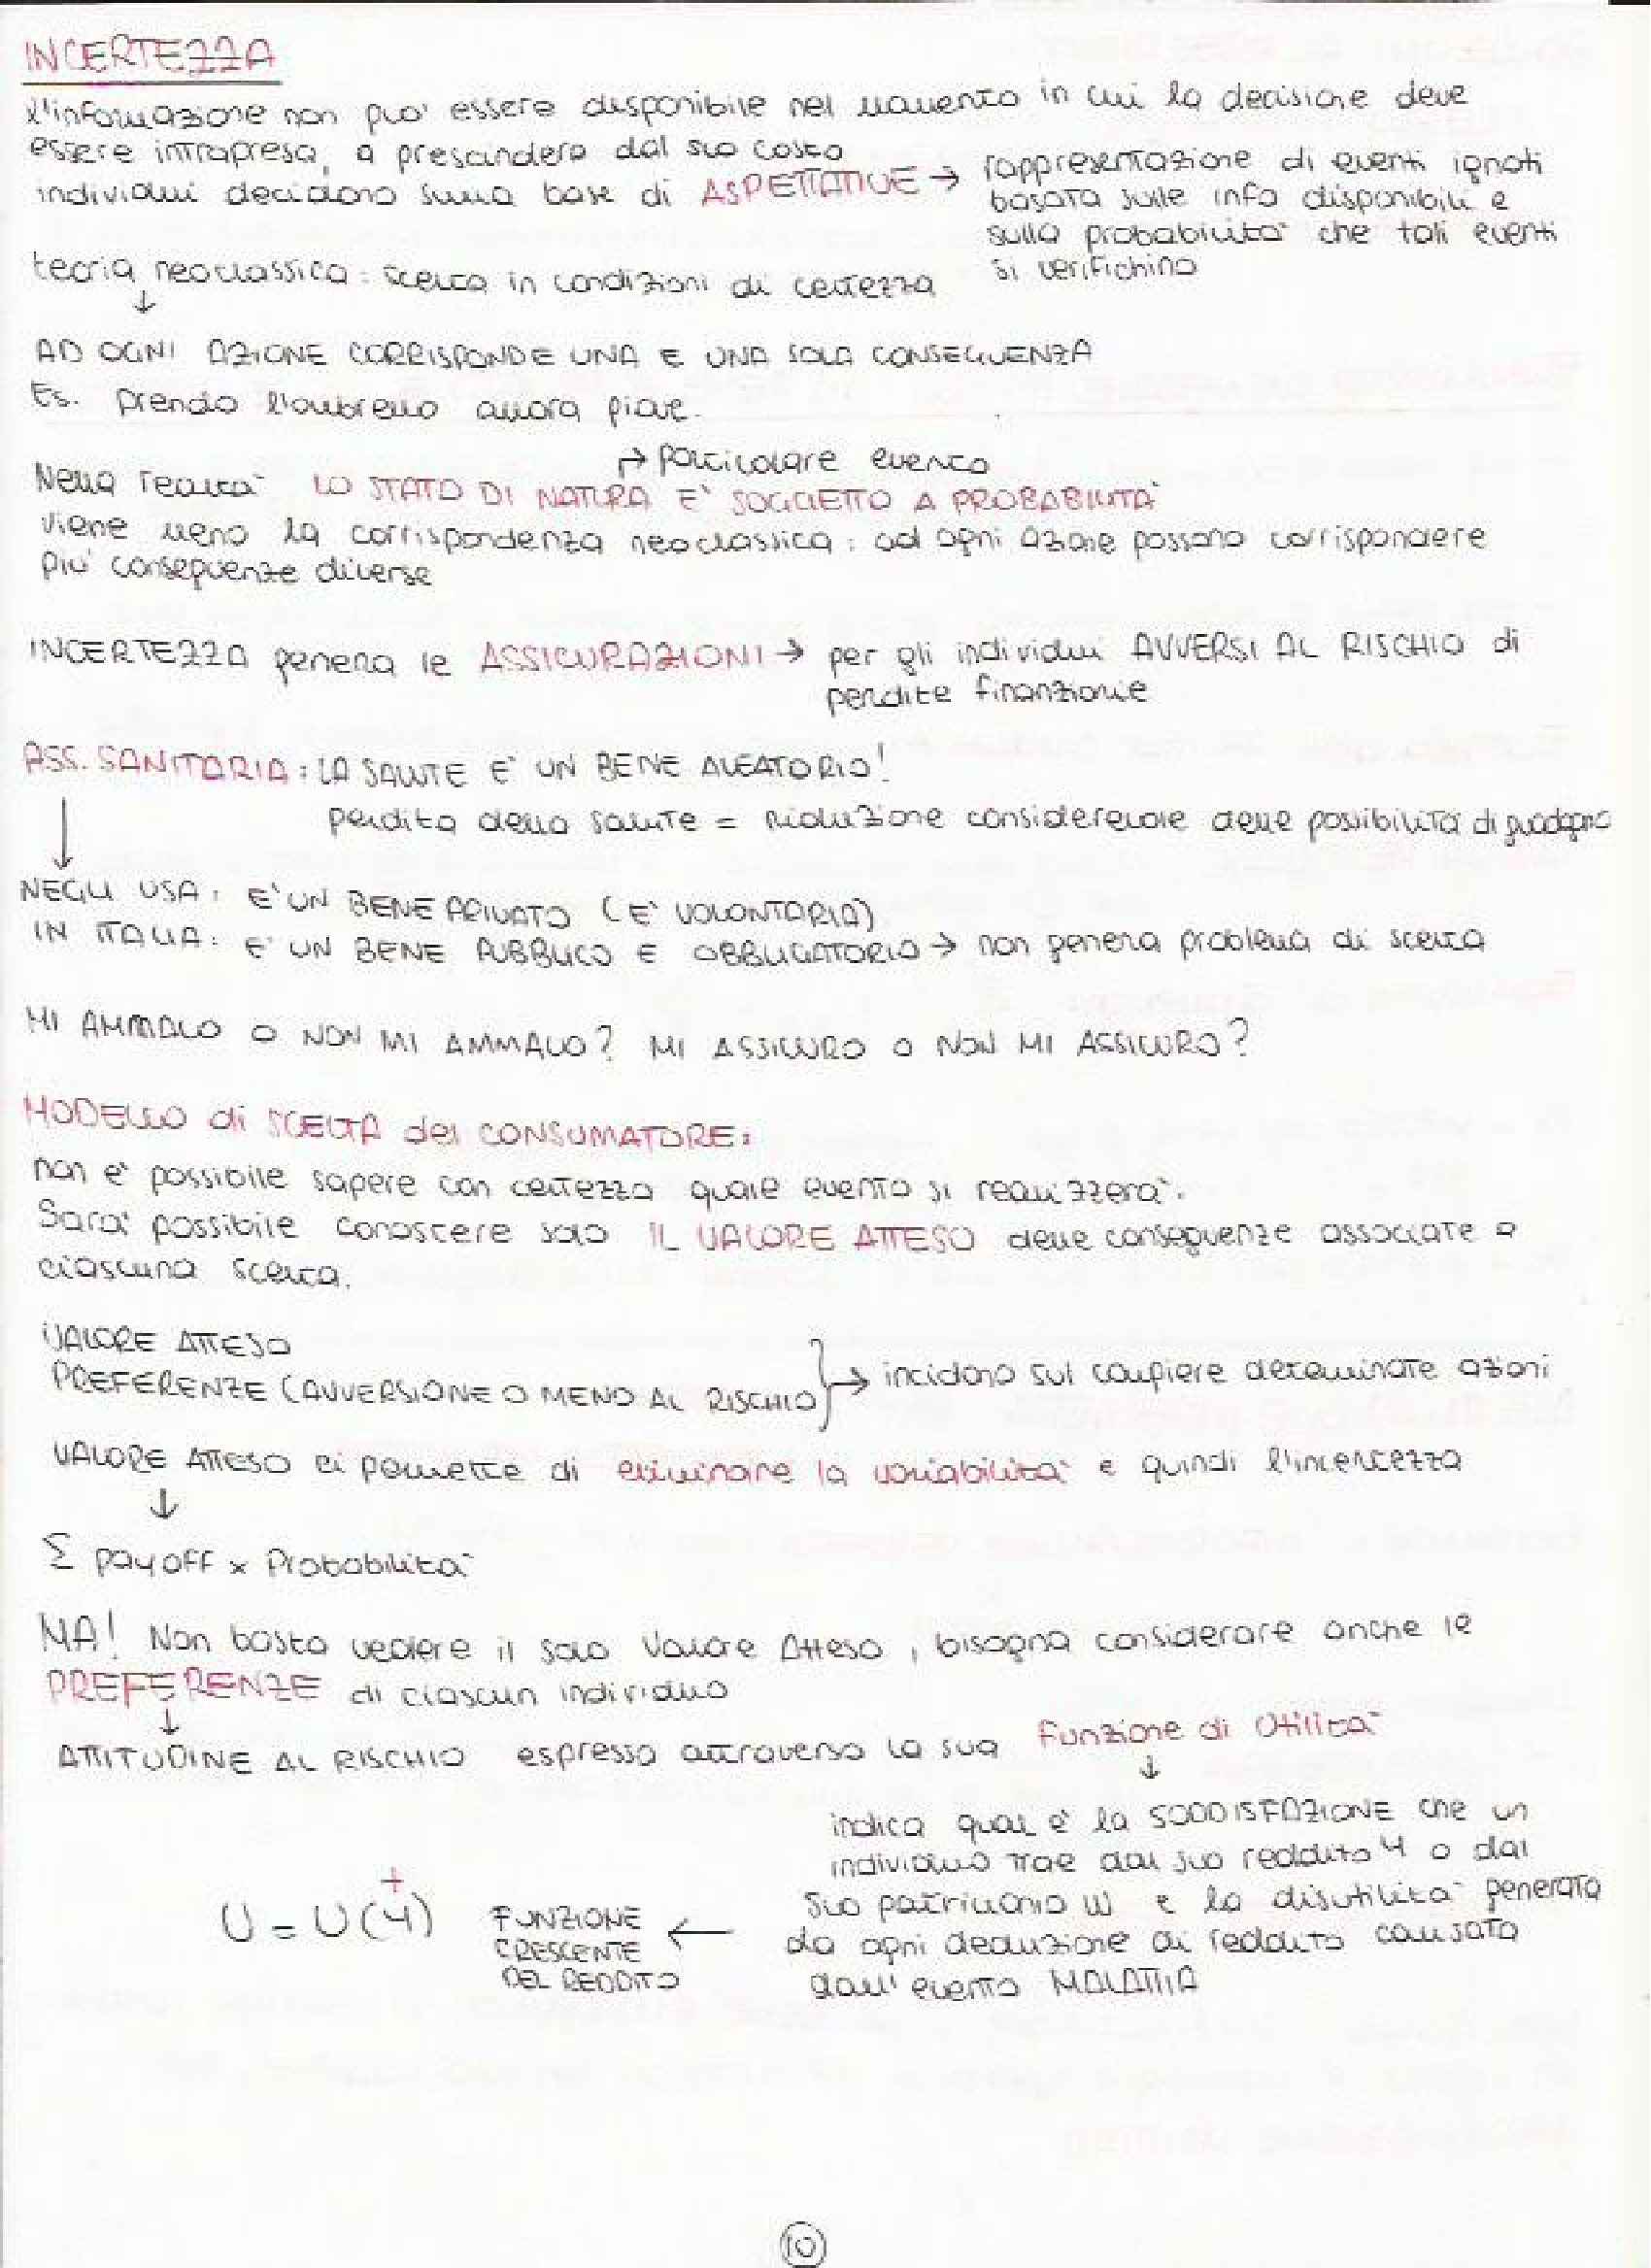 INCERTEZZA
l'informazione non può essere disponibile nel momento in cui la decisione deve
essere intrapresa, a prescindere dal suo costo
individui decidono sulla base di ASPETTATIVE → rappresentazione di eventi ignoti
basata sulle info disponibili e
sulla probabilità che tali eventi
si verifichino
teoria neoclassica: scelta in condizioni di certezza
↓
AD OGNI AZIONE CORRISPONDE UNA E UNA SOLA CONSEGUENZA
Es. prendo l'ombrello allora piove.
↱ particolare evento
Nella realtà LO STATO DI NATURA E' SOGGETTO A PROBABILITA'
viene meno la corrispondenza neoclassica: ad ogni azione possono corrispondere
più conseguenze diverse
INCERTEZZA genera le ASSICURAZIONI → per gli individui AVVERSI AL RISCHIO di
perdite finanziarie
ASS. SANITARIA: LA SALUTE E' UN BENE ALEATORIO!
perdita della salute = riduzione considerevole delle possibilità di guadagno
↓
NEGLI USA: E' UN BENE PRIVATO (E' VOLONTARIA)
IN ITALIA: E' UN BENE PUBBLICO E OBBLIGATORIO → non genera problemi di scelta
MI AMMALO O NON MI AMMALO? MI ASSICURO O NON MI ASSICURO?
MODELLO di SCELTA del CONSUMATORE:
non è possibile sapere con certezza quale evento si realizzerà.
Sarà possibile conoscere solo IL VALORE ATTESO delle conseguenze associate a
ciascuna scelta.
VALORE ATTESO
PREFERENZE (AVVERSIONE O MENO AL RISCHIO) } → incidono sul compiere determinate azioni
VALORE ATTESO ci permette di eliminare la variabilità e quindi l'incertezza
↓
Σ payoff x Probabilità
MA! Non basta vedere il solo Valore Atteso, bisogna considerare anche le
PREFERENZE di ciascun individuo
↓
ATTITUDINE AL RISCHIO espressa attraverso la sua Funzione di Utilità
↓
indica qual è la SODDISFAZIONE che un
individuo trae dal suo reddito Y o dal
suo patrimonio W e la disutilità generata
da ogni deduzione di reddito causata
dall'evento MALATTIA
←
FUNZIONE
CRESCENTE
DEL REDDITO
+
U = U(Y)
10